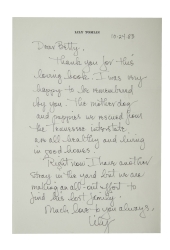 LILY TOMLIN
10-24-88
Dear Betty,
Thank you for this
loving book. I was very
happy to be remembered
by you. The mother dog
and puppies we rescued from
the Tennessee interstate
are all healthy and living
in good homes.
Right now I have another
stray in the yard but we are
making an all-out effort to
find his last family.
Much love to you always,
Lily